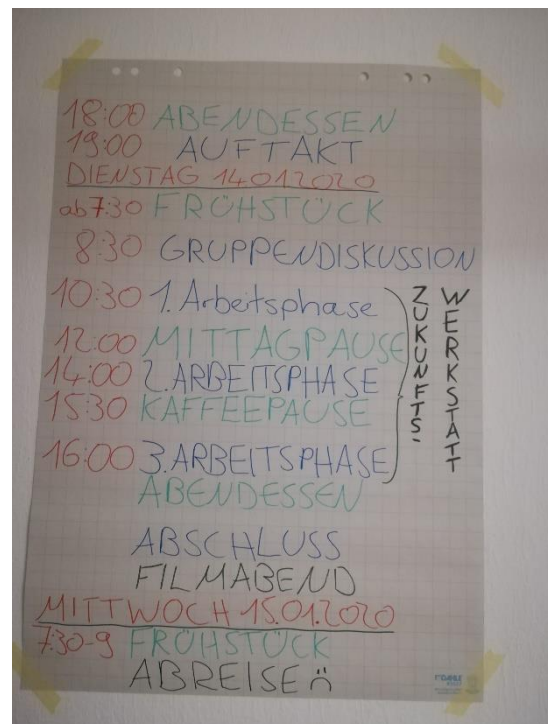 18:00 ABENDESSEN
19:00 AUFTAKT
DIENSTAG 14.01.2020
ab 7:30 FRÜHSTÜCK
8:30 GRUPPENDISKUSSION
10:30 1. Arbeitsphase
12:00 MITTAGPAUSE
14:00 2. ARBEITSPHASE
15:30 KAFFEEPAUSE
16:00 3. ARBEITSPHASE
ABENDESSEN
ZUKUNFTS-
WERKSTATT
ABSCHLUSS
FILMABEND
MITTWOCH 15.01.2020
7:30-9 FRÜHSTÜCK
ABREISE
DAHLE